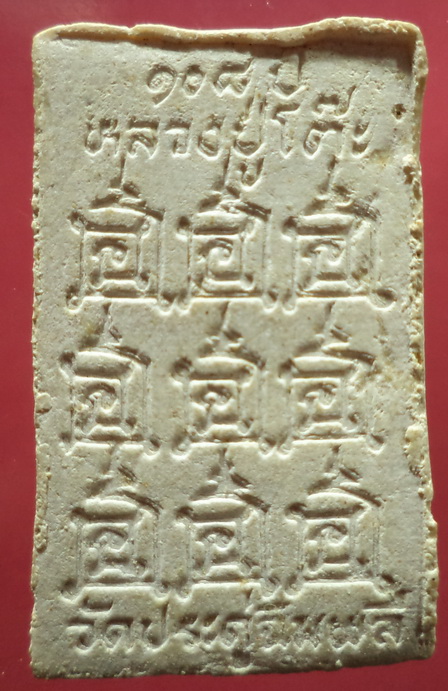 ๑๐๘ ปี
หลวงปู่โต๊ะ
วัดประดู่ฉิมพลี